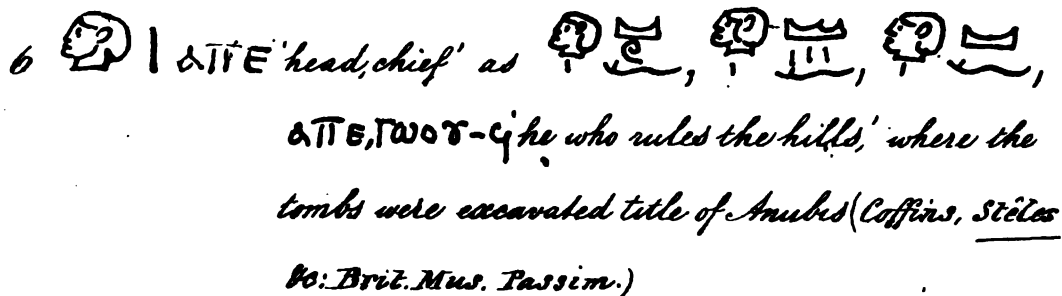 6 𓁶 𓏤 ⲁⲡⲉ 'head, chief' as 𓁶𓏤𓈋𓏲𓆑, 𓁶𓏤𓈋𓏥𓆑, 𓁶𓏤𓈋𓆑,
ⲁⲡⲉ, ⲧⲱⲟⲩ-ϥ 'he who rules the hills,' where the
tombs were excavated title of Anubis (Coffins, Stêles
&c: Brit. Mus. Passim.)